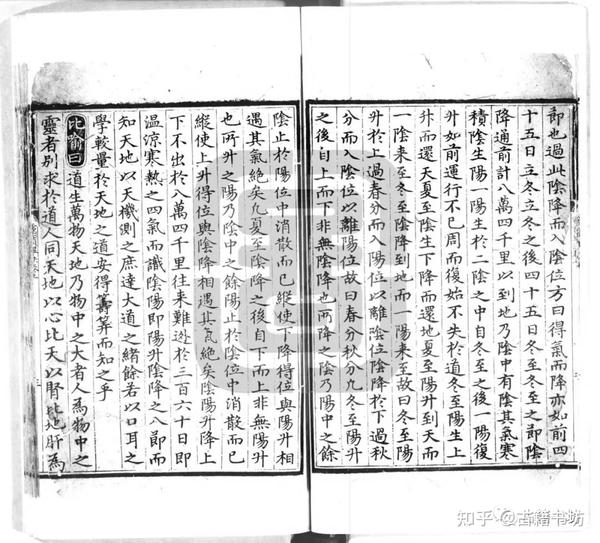 即也過此陰降而入陰位方曰得氣而降亦如前四
十五日立冬立冬之後四十五日冬至冬至之即陰
降通前計八萬四千里以到地乃陰中有陰其氣寒
積陰生陽一陽生於二陰之中自冬至之後一陽復
升如前運行不已周而復始不失於道冬至陽生上
升而還天夏至陰生下降而還地夏至陽升到天而
一陰來至冬至陰降到地而一陽來至故曰冬至陽
升於上過春分而入陽位以離陰位陰降於下過秋
分而入陰位以離陽位故曰春分秋分凡冬至陽升
之後自上而下非無陰降也所降之陰乃陽中之餘
陰止於陽位中消散而已縱使下降得位與陽升相
遇其氣絕矣凡夏至陰降之後自下而上非無陽升
也所升之陽乃陰中之餘陽止於陰位中消散而已
縱使上升得位與陰降相遇其氣絕矣陰陽升降上
下不出於八萬四千里往來難逃於三百六十日即
溫涼寒熱之四氣而識陰陽即陽升陰降之八即而
知天地以天機測之庶達大道之緒餘若以口耳之
學較量於天地之道安得籌算而知之乎
比喻曰道生萬物天地乃物中之大者人為物中之
靈者別求於道人同天地以心比天以腎比地肝為
知乎 @古籍书坊